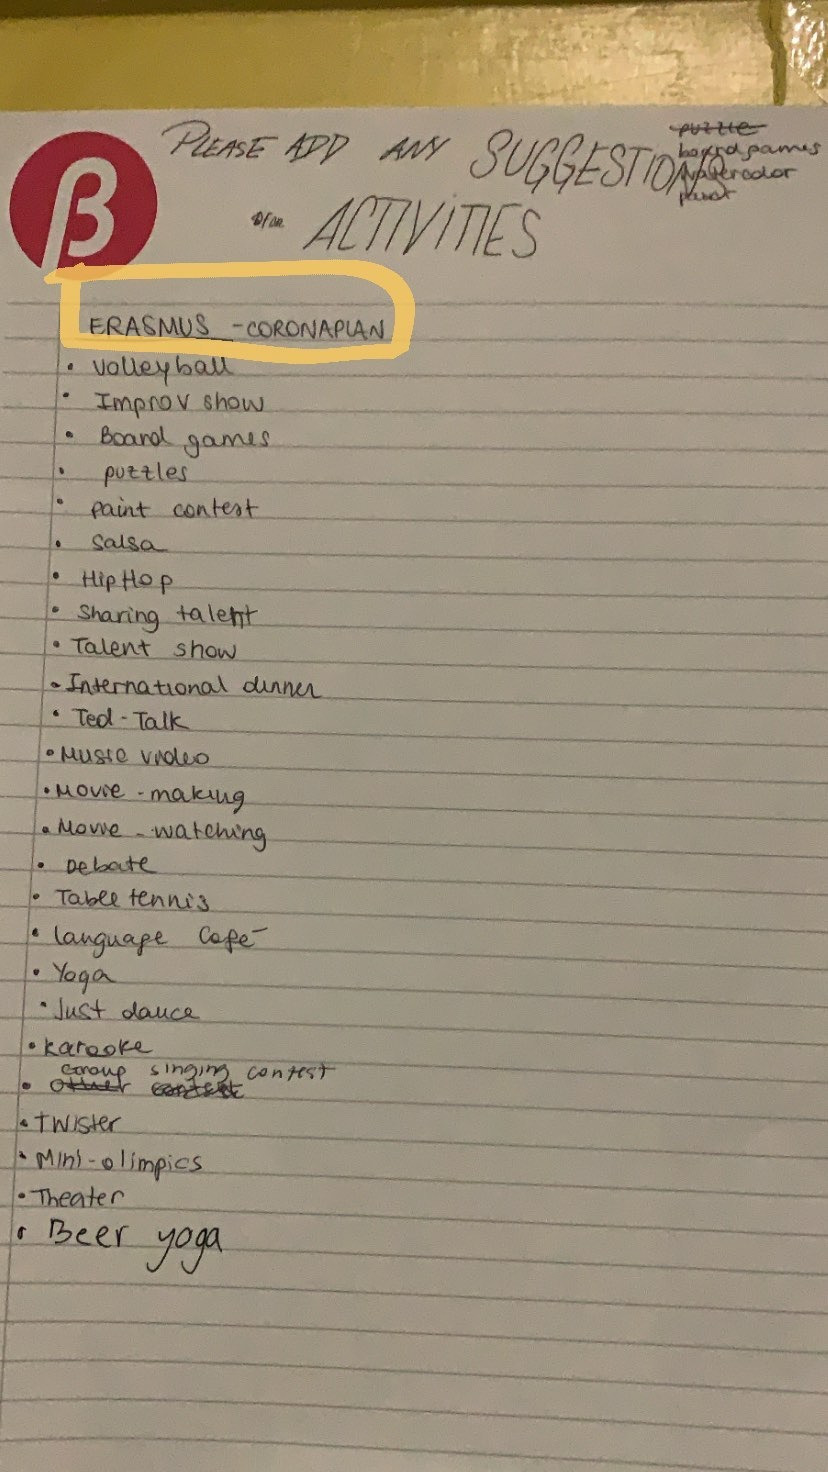 β
PLEASE ADD ANY SUGGESTIONS
puzzle
boardgames
watercolor
paint
&/OR ACTIVITIES
ERASMUS - CORONAPLAN
• Volleyball
• Improv show
• Board games
• puzzles
• paint contest
• Salsa
• HipHop
• Sharing talent
• Talent show
• International dinner
• Ted-Talk
• Music video
• Movie-making
• Movie-watching
• Debate
• Table tennis
• language Café
• Yoga
• Just dance
• karaoke
Group singing contest
• other contest
• Twister
• Mini-olimpics
• Theater
• Beer yoga